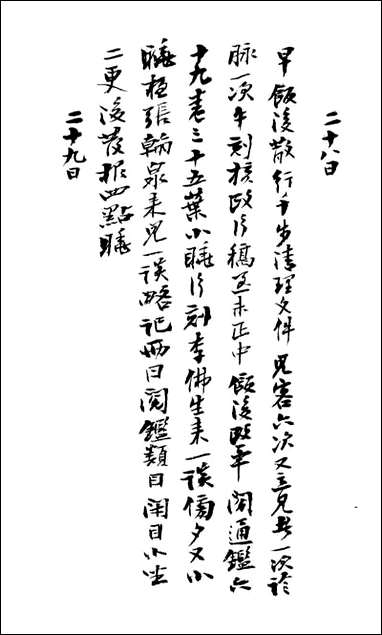 二十八日
早飯後散行千步清理文件見客六次又立見者一次診
脉一次午刻核改信稿至未正中飯後改畢閱通鑑六
十九卷三十五葉小睡酉刻李佛生來一談傍夕又小
睡在張翰泉來見一談略記兩日閱鑑類目閉目小坐
二更後發報四點睡
二十九日